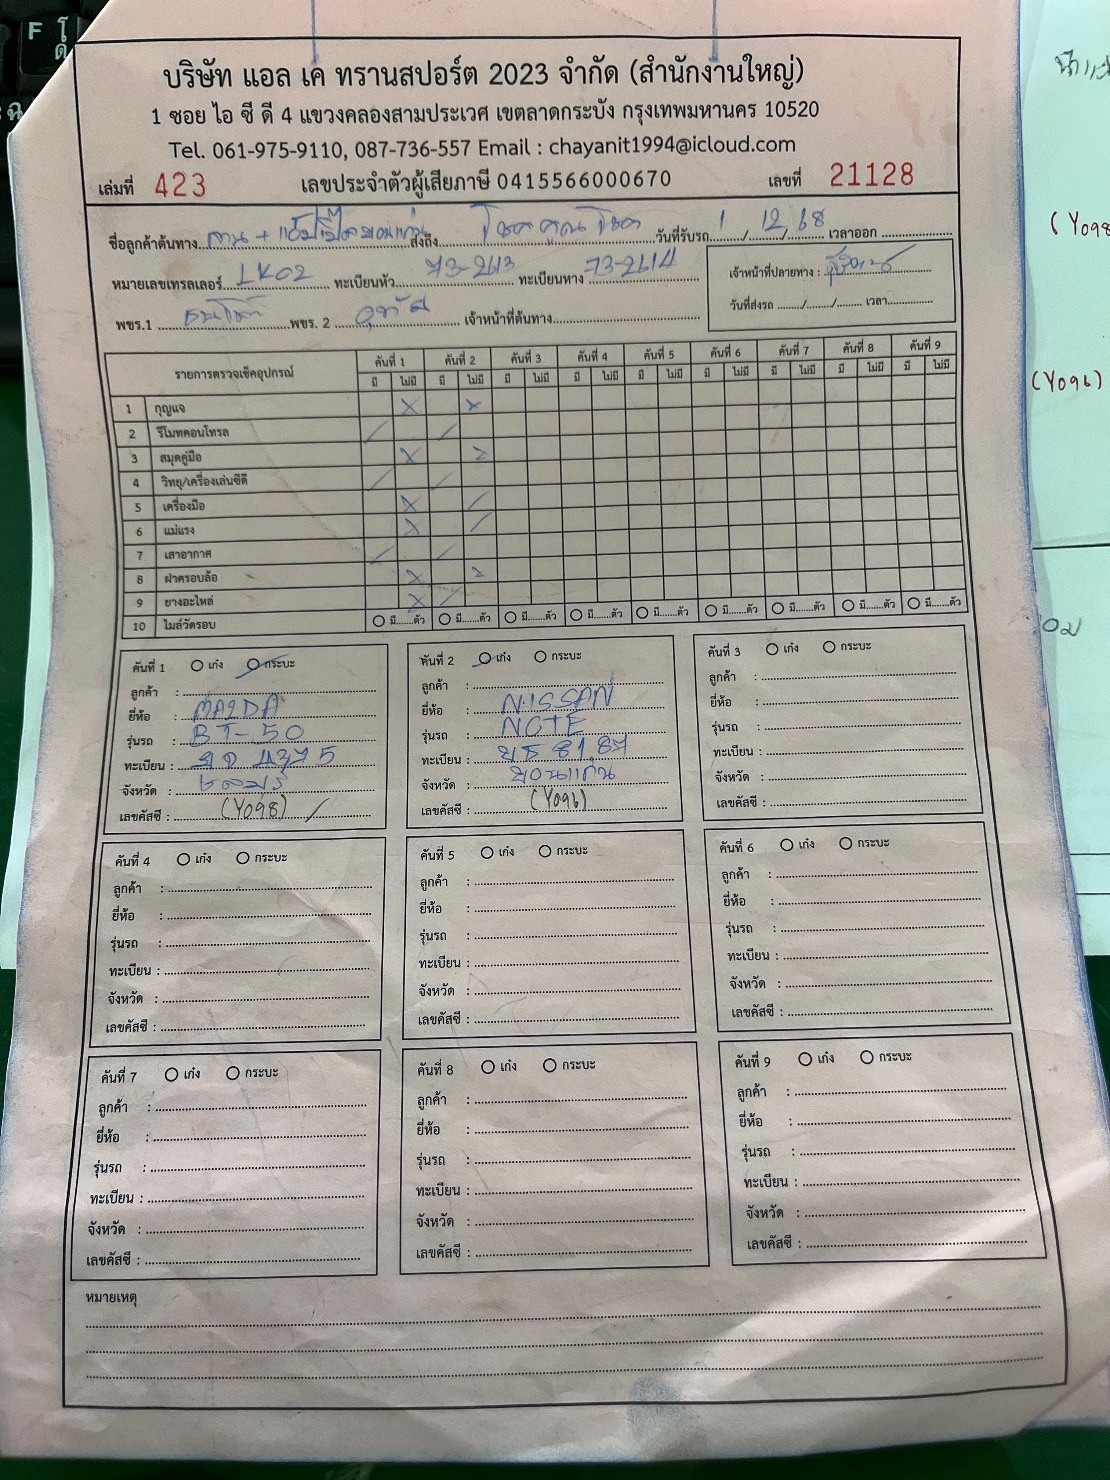 F โ
ด
บริษัท แอล เค ทรานสปอร์ต 2023 จำกัด (สำนักงานใหญ่)
1 ซอย ไอ ซี ดี 4 แขวงคลองสามประเวศ เขตลาดกระบัง กรุงเทพมหานคร 10520
Tel. 061-975-9110, 087-736-557 Email : chayanit1994@icloud.com
เล่มที่ 423 เลขประจำตัวผู้เสียภาษี 0415566000670 เลขที่ 21128
ชื่อลูกค้าต้นทาง ลาน + ส่งถึง โชคคูณโชค วันที่รับรถ 1 / 12 / 68 เวลาออก
หมายเลขเทรลเลอร์ LK02 ทะเบียนหัว 73-2613 ทะเบียนหาง 73-2614 เจ้าหน้าที่ปลายทาง :
พขร.1 พขร. 2 เจ้าหน้าที่ต้นทาง วันที่ส่งรถ ....../....../...... เวลา
รายการตรวจเช็คอุปกรณ์ คันที่ 1 คันที่ 2 คันที่ 3 คันที่ 4 คันที่ 5 คันที่ 6 คันที่ 7 คันที่ 8 คันที่ 9
มี ไม่มี มี ไม่มี มี ไม่มี มี ไม่มี มี ไม่มี มี ไม่มี มี ไม่มี มี ไม่มี มี ไม่มี
1 กุญแจ
2 รีโมทคอนโทรล
3 สมุดคู่มือ
4 วิทยุ/เครื่องเล่นซีดี
5 เครื่องมือ
6 แม่แรง
7 เสาอากาศ
8 ฝาครอบล้อ
9 ยางอะไหล่
10 ไมล์วัดรอบ มี......ตัว มี......ตัว มี......ตัว มี......ตัว มี......ตัว มี......ตัว มี......ตัว มี......ตัว มี......ตัว
คันที่ 1 เก๋ง กระบะ
ลูกค้า :
ยี่ห้อ : MAZDA
รุ่นรถ : BT-50
ทะเบียน : 4375
จังหวัด : ชลบุรี
เลขคัสซี : (Y098)
คันที่ 2 เก๋ง กระบะ
ลูกค้า :
ยี่ห้อ : NISSAN
รุ่นรถ : NOTE
ทะเบียน : ขธ 8187
จังหวัด : ขอนแก่น
เลขคัสซี : (Y096)
คันที่ 3 เก๋ง กระบะ
ลูกค้า :
ยี่ห้อ :
รุ่นรถ :
ทะเบียน :
จังหวัด :
เลขคัสซี :
คันที่ 4 เก๋ง กระบะ
ลูกค้า :
ยี่ห้อ :
รุ่นรถ :
ทะเบียน :
จังหวัด :
เลขคัสซี :
คันที่ 5 เก๋ง กระบะ
ลูกค้า :
ยี่ห้อ :
รุ่นรถ :
ทะเบียน :
จังหวัด :
เลขคัสซี :
คันที่ 6 เก๋ง กระบะ
ลูกค้า :
ยี่ห้อ :
รุ่นรถ :
ทะเบียน :
จังหวัด :
เลขคัสซี :
คันที่ 7 เก๋ง กระบะ
ลูกค้า :
ยี่ห้อ :
รุ่นรถ :
ทะเบียน :
จังหวัด :
เลขคัสซี :
คันที่ 8 เก๋ง กระบะ
ลูกค้า :
ยี่ห้อ :
รุ่นรถ :
ทะเบียน :
จังหวัด :
เลขคัสซี :
คันที่ 9 เก๋ง กระบะ
ลูกค้า :
ยี่ห้อ :
รุ่นรถ :
ทะเบียน :
จังหวัด :
เลขคัสซี :
หมายเหตุ
(Y098
(Y096)